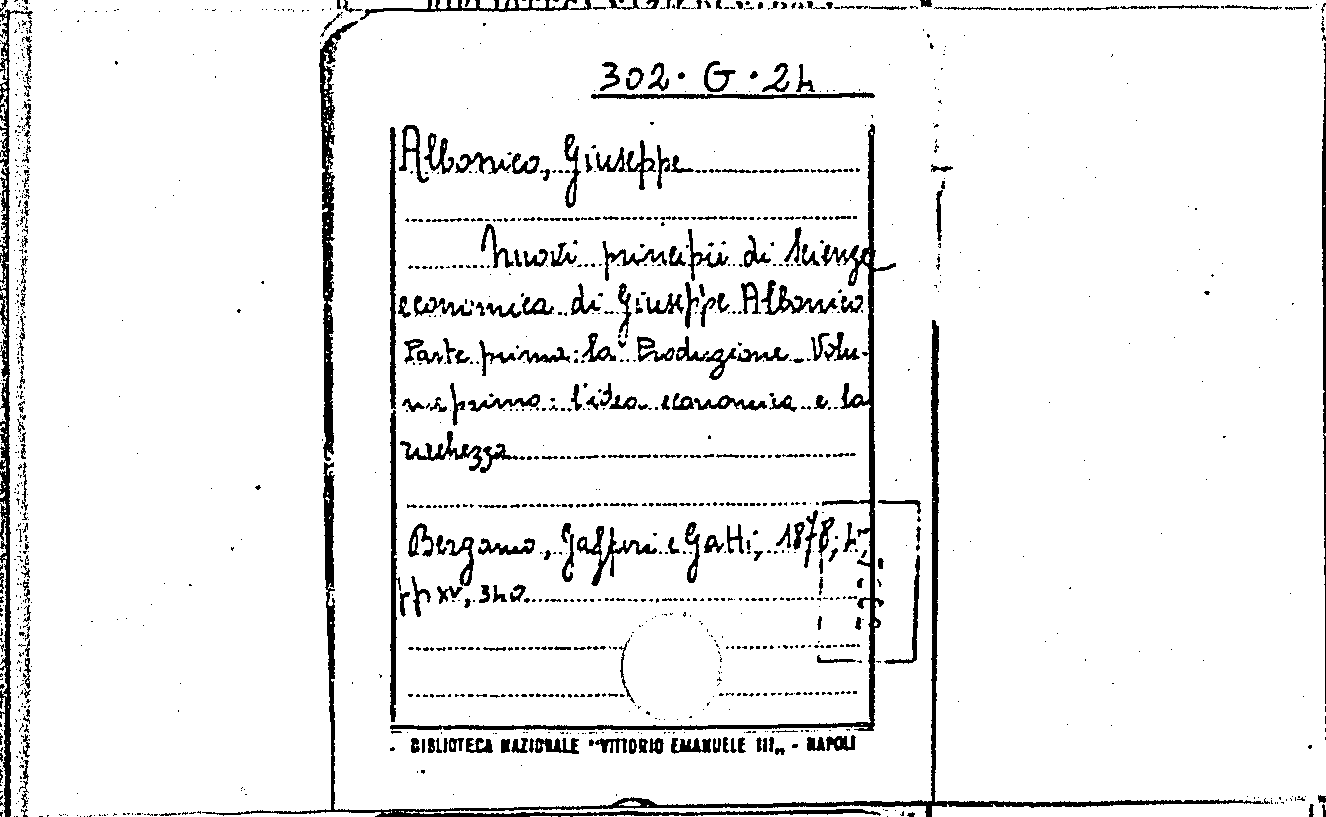 302 · G · 24
Albonico, Giuseppe
Nuovi principii di Scienza
economica di Giuseppe Albonico
Parte prima: la Produzione - Volu-
me primo: l'idea economica e la
ricchezza
Bergamo, Gaffuri e Gatti, 1878, 4,
pp XV, 340.
BIBLIOTECA NAZIONALE "VITTORIO EMANUELE III„ - NAPOLI